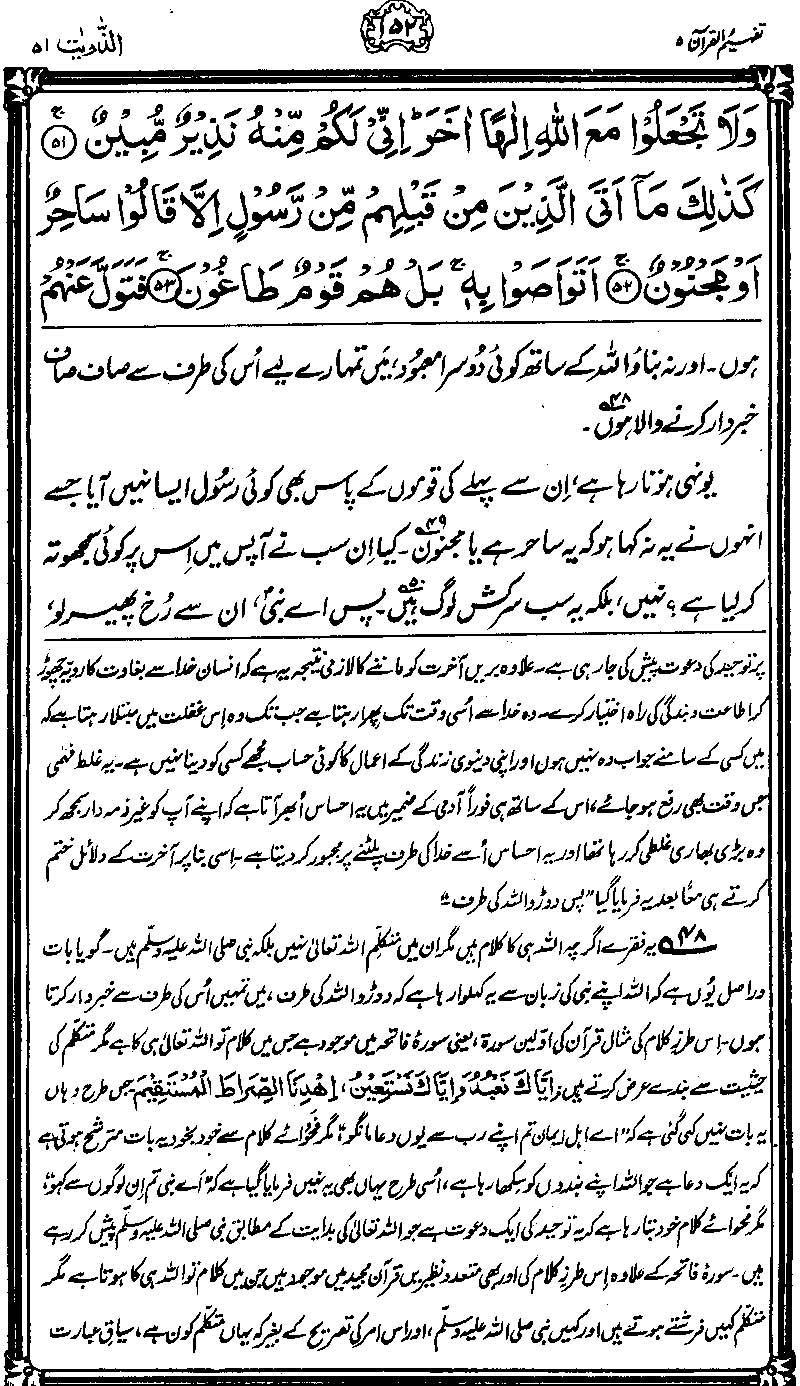 تفہیم القرآن ۵
۱۵۲
الذّٰریٰت ۵۱
وَلَا تَجْعَلُوْا مَعَ اللّٰهِ اِلٰهًا اٰخَرَ ؕ اِنِّیْ لَكُمْ مِّنْهُ نَذِیْرٌ مُّبِیْنٌ ۚ۝۵۱
كَذٰلِكَ مَاۤ اَتَی الَّذِیْنَ مِنْ قَبْلِهِمْ مِّنْ رَّسُوْلٍ اِلَّا قَالُوْا سَاحِرٌ
اَوْ مَجْنُوْنٌ ۚ۝۵۲ اَتَوَاصَوْا بِهٖ ۚ بَلْ هُمْ قَوْمٌ طَاغُوْنَ ۚ۝۵۳ فَتَوَلَّ عَنْهُمْ
ہوں۔ اور نہ بناؤ اللہ کے ساتھ کوئی دُوسرا معبود، میں تمہارے لیے اُس کی طرف سے صاف صاف
خبردار کرنے والا ہوں۴۸۔
یونہی ہوتا رہا ہے، اِن سے پہلے کی قوموں کے پاس بھی کوئی رسُول ایسا نہیں آیا جسے
انہوں نے یہ نہ کہا ہو کہ یہ ساحر ہے یا مجنون۴۹۔ کیا اِن سب نے آپس میں اِس پر کوئی سمجھوتہ
کر لیا ہے؟ نہیں، بلکہ یہ سب سرکش لوگ ہیں۵۰۔ پس اے نبیؐ، ان سے رُخ پھیر لو،
پر توحید کی دعوت پیش کی جا رہی ہے۔ علاوہ بریں آخرت کو ماننے کا لازمی نتیجہ یہ ہے کہ انسان خدا سے بغاوت کا رویہ چھوڑ
کر اطاعت و بندگی کی راہ اختیار کرے۔ وہ خدا سے اُسی وقت تک پھرا رہتا ہے جب تک وہ اِس غفلت میں مبتلا رہتا ہے کہ
میں کسی کے سامنے جواب دہ نہیں ہوں اور اپنی دنیوی زندگی کے اعمال کا کوئی حساب مجھے کسی کو دینا نہیں ہے۔ یہ غلط فہمی
جس وقت بھی رفع ہو جائے، اس کے ساتھ ہی فوراً آدمی کے ضمیر میں یہ احساس اُبھر آتا ہے کہ اپنے آپ کو غیر ذمہ دار سمجھ کر
وہ بڑی بھاری غلطی کر رہا تھا اور یہ احساس اُسے خدا کی طرف پلٹنے پر مجبور کر دیتا ہے۔ اِسی بنا پر آخرت کے دلائل ختم
کرتے ہی معًا بعد یہ فرمایا گیا "پس دوڑو اللہ کی طرف"۔
۴۸ یہ فقرے اگرچہ اللہ ہی کا کلام ہیں مگر ان میں متکلّم اللہ تعالیٰ نہیں بلکہ نبی صلی اللہ علیہ وسلّم ہیں۔ گویا بات
دراصل یُوں ہے کہ اللہ اپنے نبی کی زبان سے یہ کہلوا رہا ہے کہ دوڑو اللہ کی طرف، میں تمہیں اُس کی طرف سے خبردار کرتا
ہوں۔ اِس طرزِ کلام کی مثال قرآن کی اوّلین سورۃ، یعنی سورۂ فاتحہ میں موجود ہے جس میں کلام تو اللہ تعالیٰ ہی کا ہے مگر متکلّم کی
حیثیت سے بندے عرض کرتے ہیں اِیَّاكَ نَعْبُدُ وَاِیَّاكَ نَسْتَعِیْنُ، اِهْدِنَا الصِّرَاطَ الْمُسْتَقِیْمَ جس طرح وہاں
یہ بات نہیں کہی گئی ہے کہ "اے اہلِ ایمان تم اپنے رب سے یوں دعا مانگو"، مگر فحوائے کلام سے خود بخود یہ بات مترشح ہوتی ہے
کہ یہ ایک دعا ہے جو اللہ اپنے بندوں کو سکھا رہا ہے، اُسی طرح یہاں بھی یہ نہیں فرمایا گیا ہے کہ "اے نبی تم اِن لوگوں سے کہو"،
مگر فحوائے کلام خود بتا رہا ہے کہ یہ توحید کی ایک دعوت ہے جو اللہ تعالیٰ کی ہدایت کے مطابق نبی صلی اللہ علیہ وسلّم پیش کر رہے
ہیں۔ سورۂ فاتحہ کے علاوہ اِس طرزِ کلام کی اور بھی متعدد نظیریں قرآن مجید میں موجود ہیں جن میں کلام تو اللہ ہی کا ہوتا ہے مگر
متکلّم کہیں فرشتے ہوتے ہیں اور کہیں نبی صلی اللہ علیہ وسلّم، اور اس امر کی تصریح کے بغیر کہ یہاں متکلّم کون ہے، سیاقِ عبارت